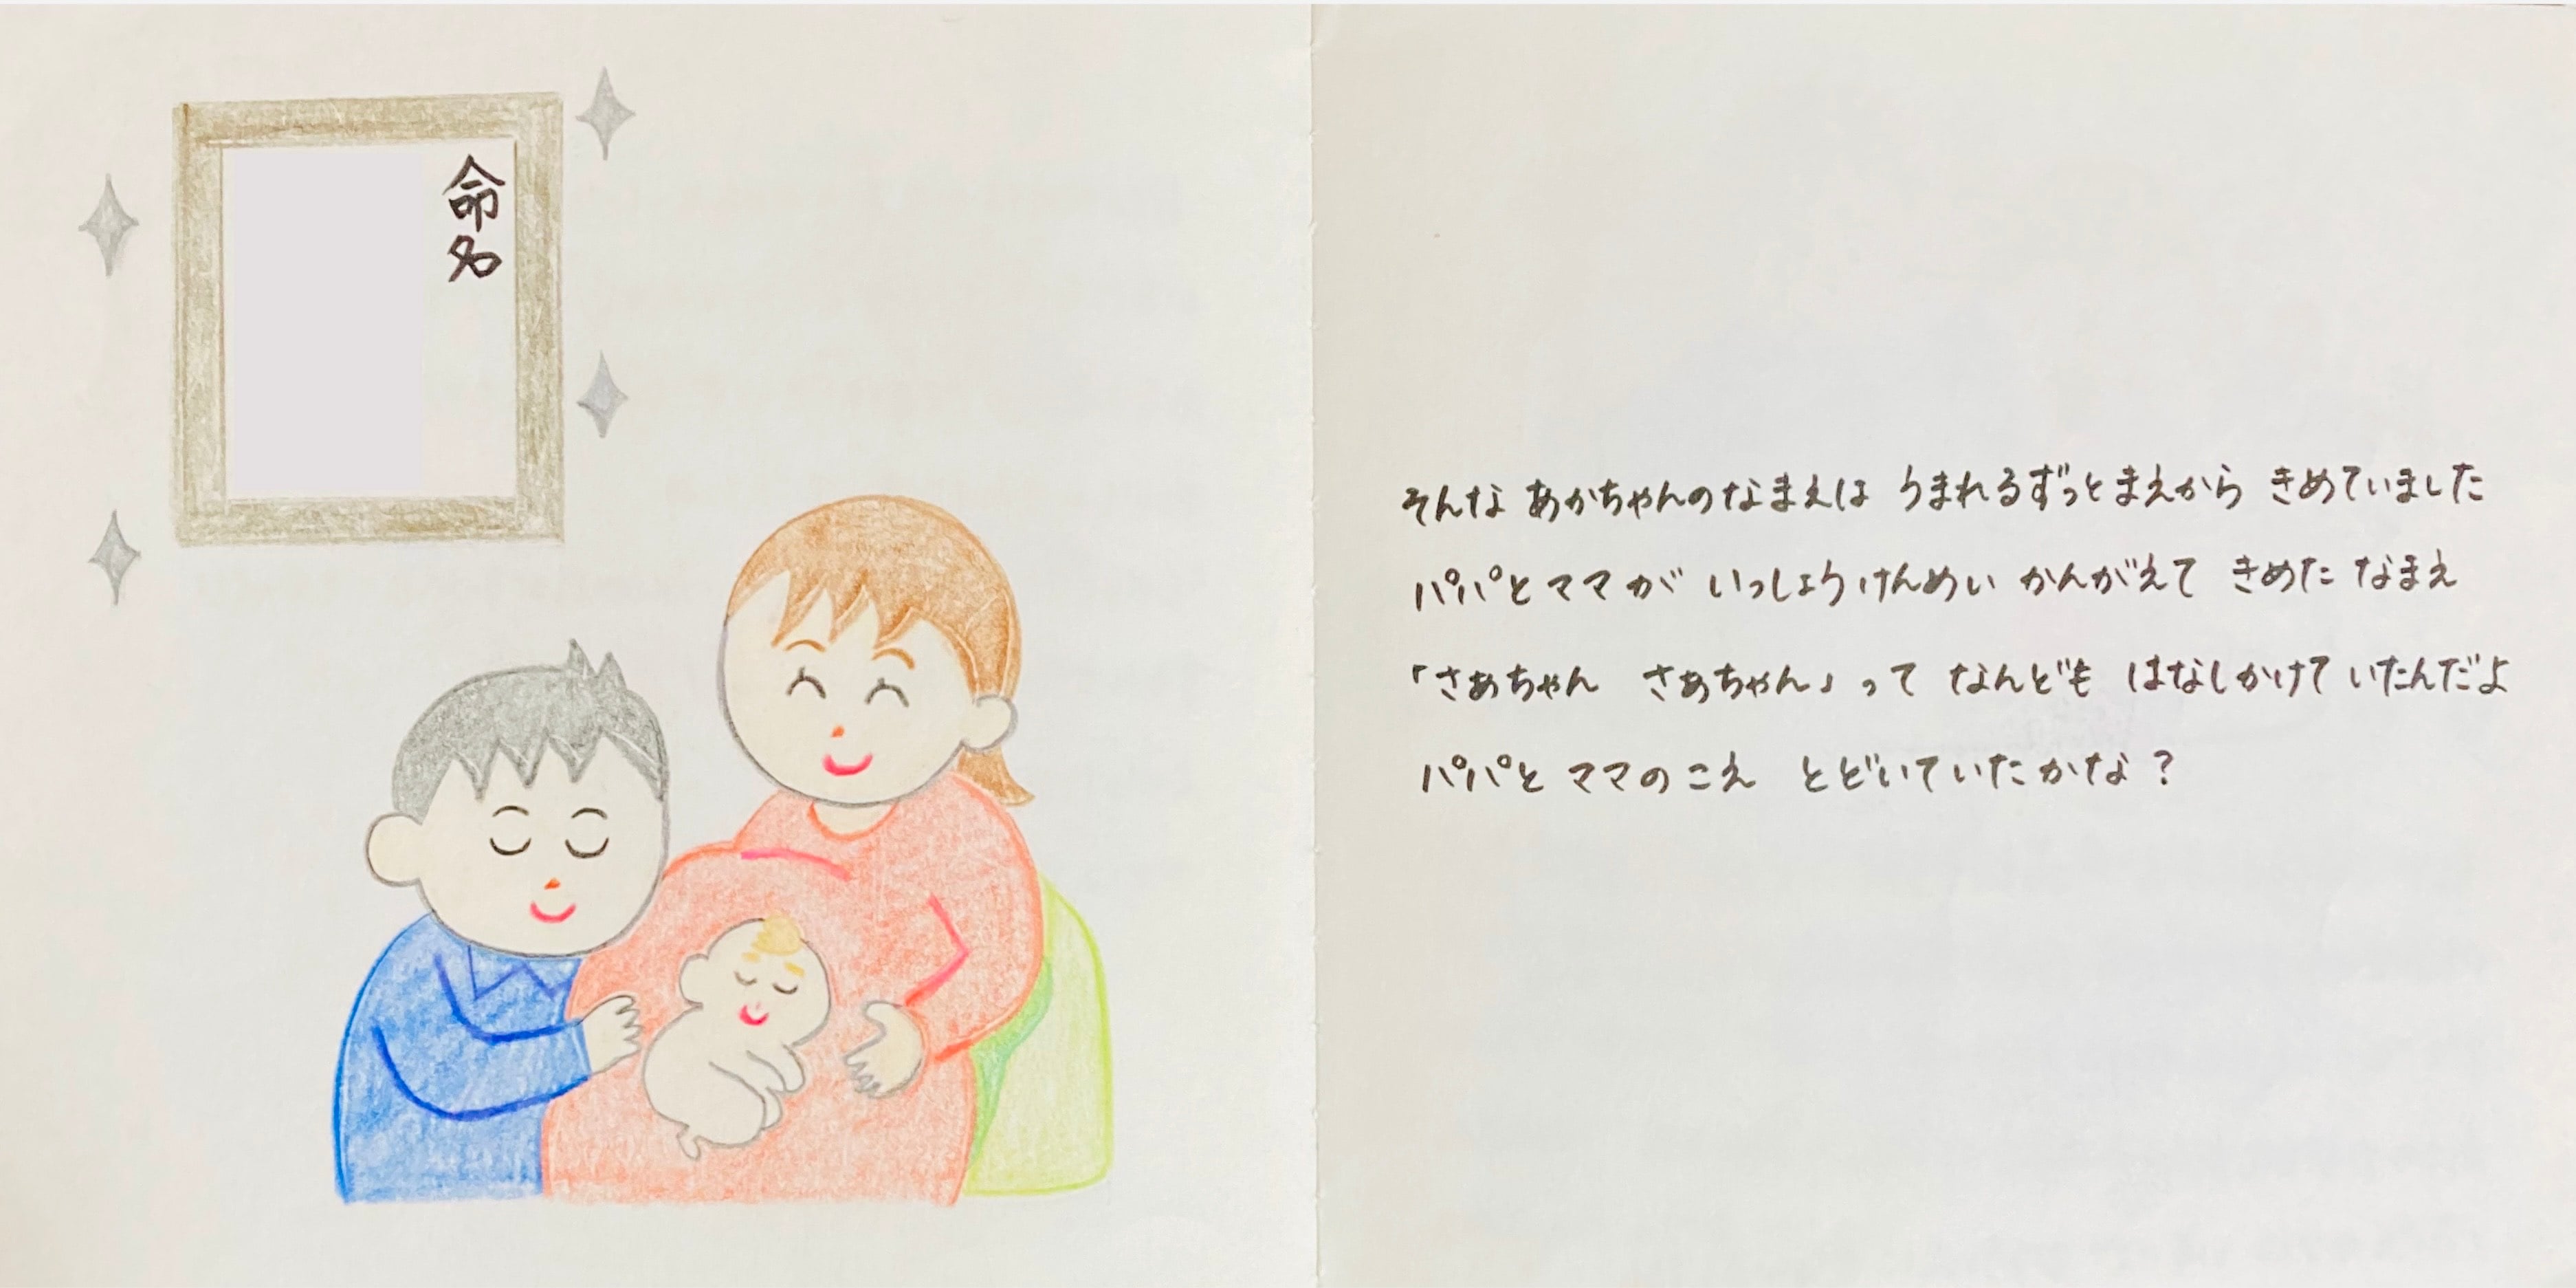 命名
そんな あかちゃんのなまえは うまれるずっとまえから きめていました
パパとママが いっしょうけんめい かんがえて きめた なまえ
「さぁちゃん さぁちゃん」って なんども はなしかけて いたんだよ
パパと ママのこえ とどいていたかな？